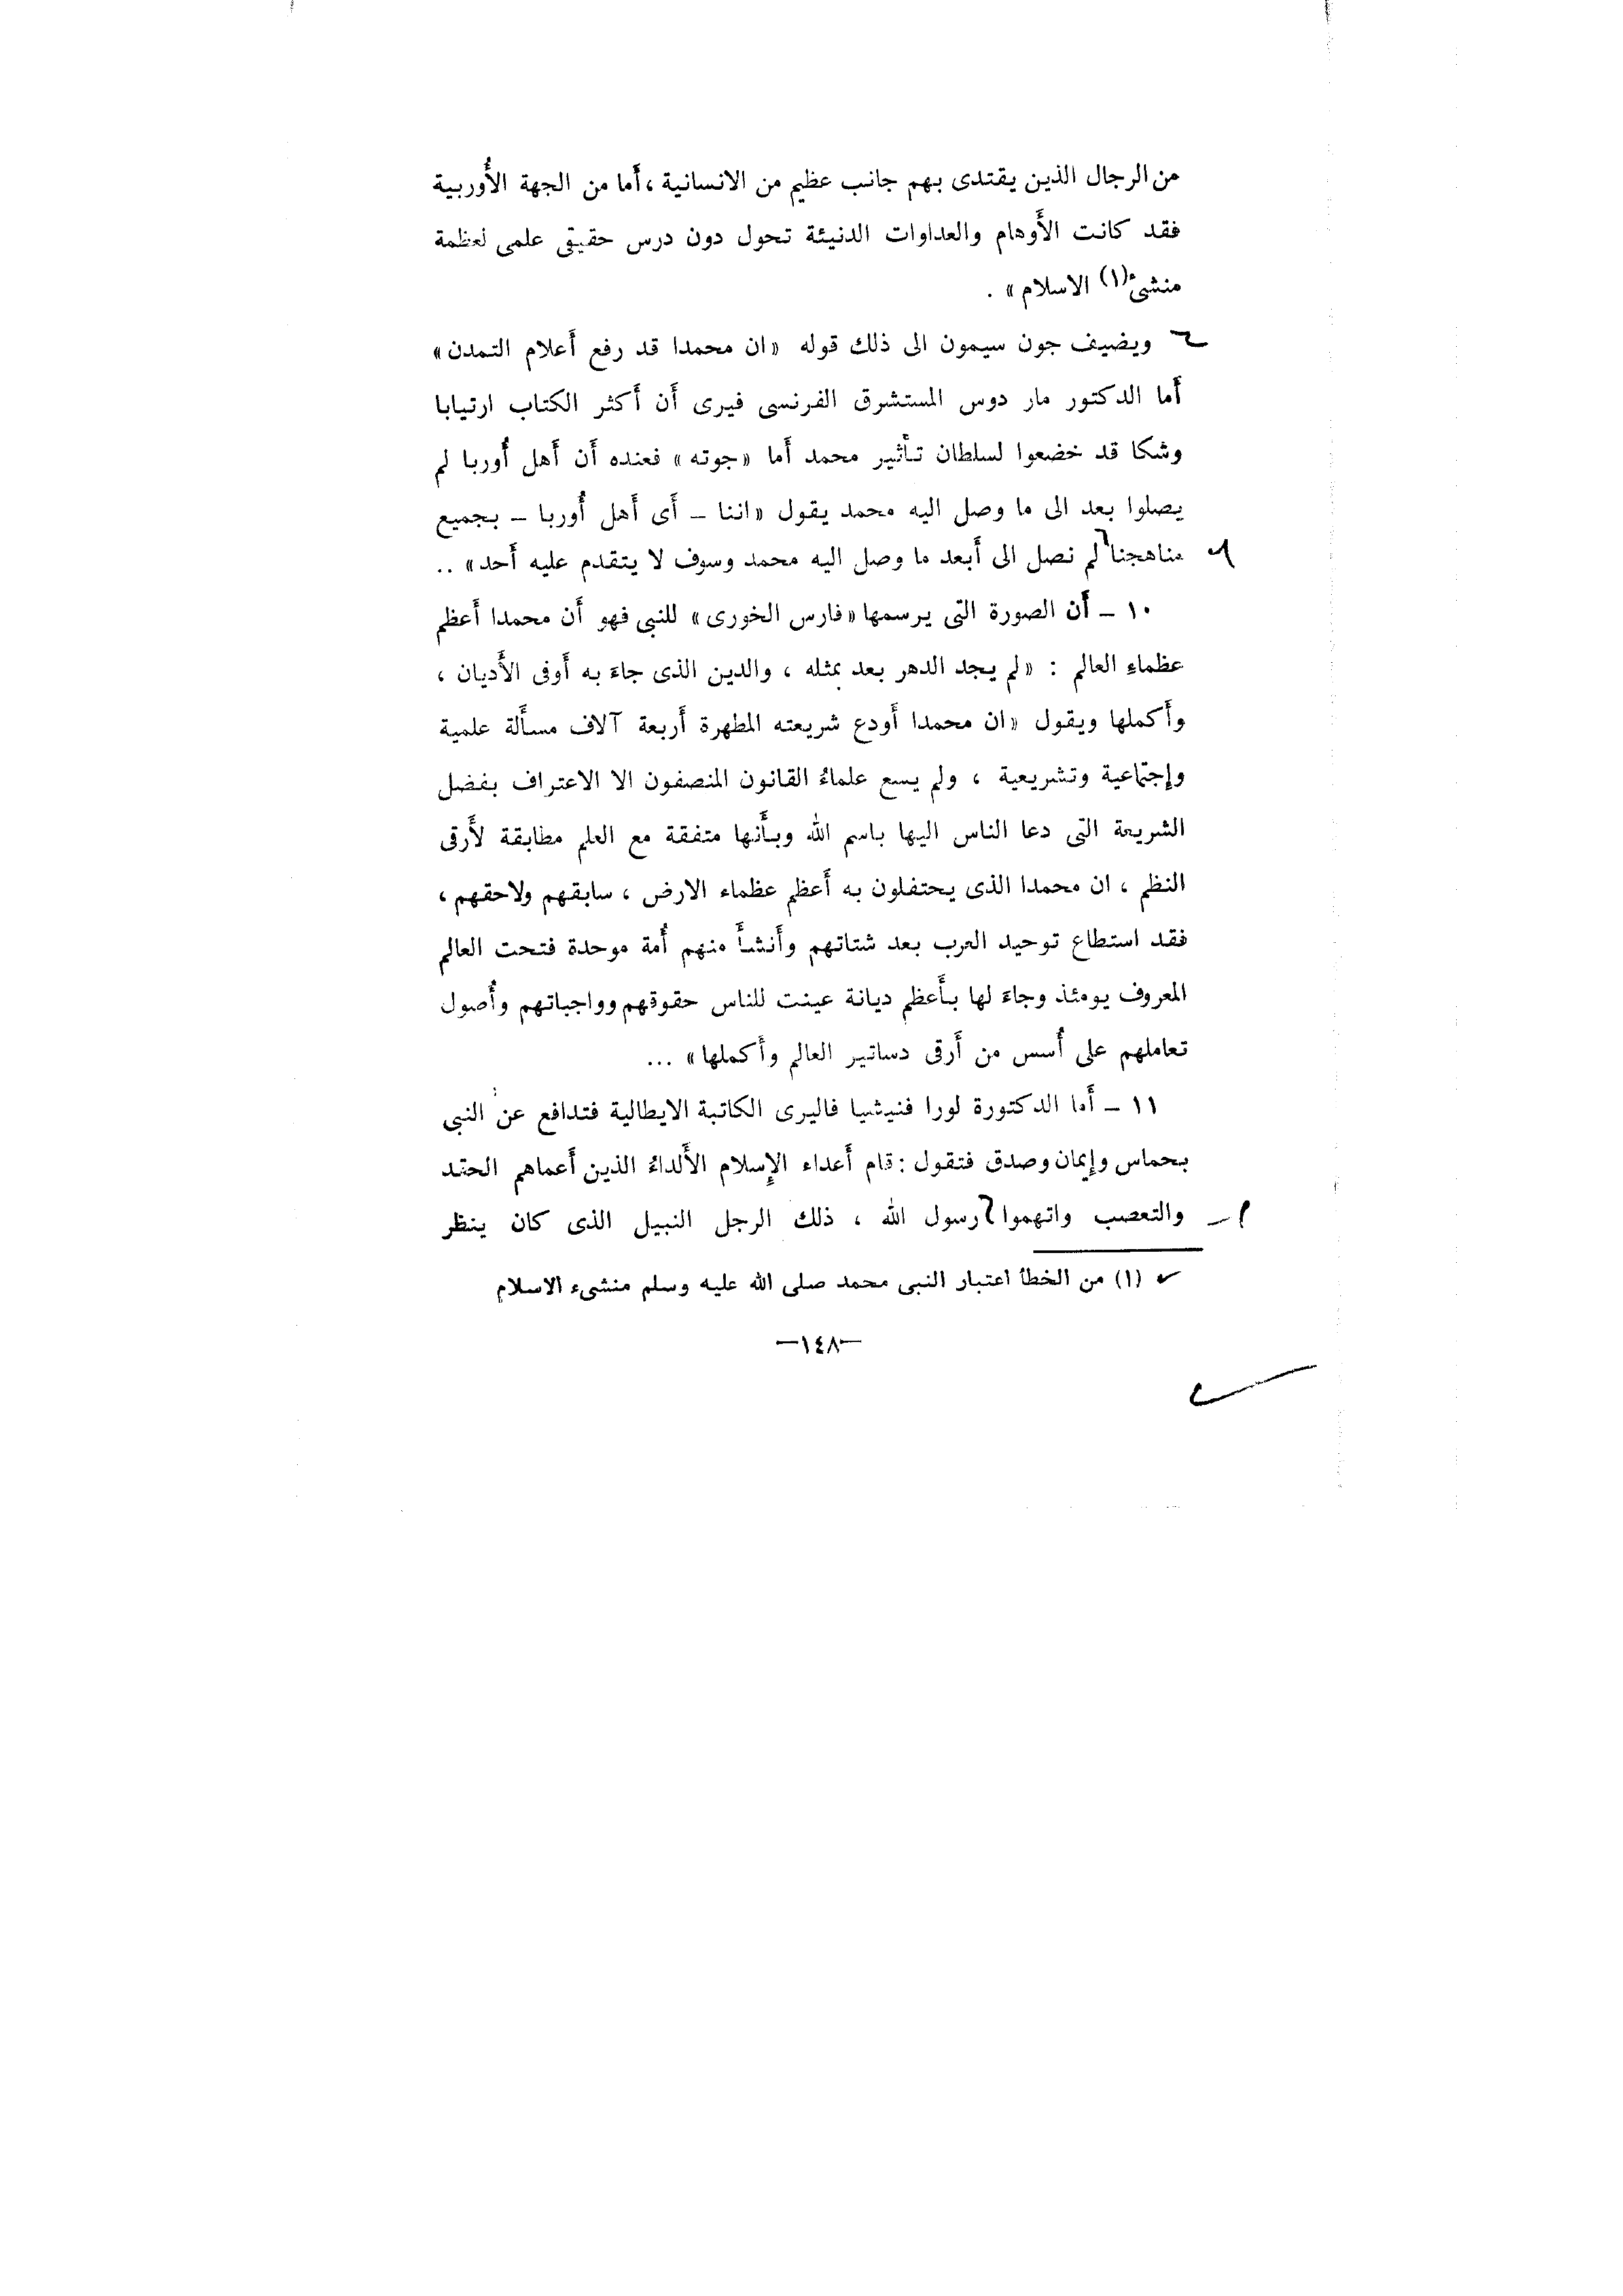 من الرجال الذين يقتدى بهم جانب عظيم من الانسانية ، أما من الجهة الأُوربية
فقد كانت الأَوهام والعداوات الدنيئة تحول دون درس حقيقى علمى لعظمة
منشىء(١) الاسلام » .
ويضيف جون سيمون الى ذلك قوله « ان محمدا قد رفع أَعلام التمدن »
أَما الدكتور مار دوس المستشرق الفرنسى فيرى أَن أَكثر الكتاب ارتيابا
وشكا قد خضعوا لسلطان تأثير محمد أَما « جوته » فعنده أَن أَهل أُوربا لم
يصلوا بعد الى ما وصل اليه محمد يقول « اننا ــ أَى أَهل أُوربا ــ بجميع
مناهجنا لم نصل الى أَبعد ما وصل اليه محمد وسوف لا يتقدم عليه أَحد » ..
١٠ ــ أَن الصورة التى يرسمها « فارس الخورى » للنبى فهو أَن محمدا أَعظم
عظماءِ العالم : « لم يجد الدهر بعد بمثله ، والدين الذى جاءَ به أَوفى الأَديان ،
وأَكملها ويقول « ان محمدا أَودع شريعته المطهرة أَربعة آلاف مسأَلة علمية
وإجتماعية وتشريعية ، ولم يسع علماءُ القانون المنصفون الا الاعتراف بفضل
الشريعة التى دعا الناس اليها باسم الله وبأَنها متفقة مع العلم مطابقة لأَرقى
النظم ، ان محمدا الذى يحتفلون به أَعظم عظماء الارض ، سابقهم ولاحقهم ،
فقد استطاع توحيد العرب بعد شتاتهم وأَنشأَ منهم أُمة موحدة فتحت العالم
المعروف يومئذ وجاءَ لها بأَعظم ديانة عينت للناس حقوقهم وواجباتهم وأُصول
تعاملهم على أُسس من أَرقى دساتير العالم وأَكملها » ...
١١ ــ أَما الدكتورة لورا فنيشيا فاليرى الكاتبة الايطالية فتدافع عن النبى
بحماس وإيمان وصدق فتقول : قام أَعداء الإسلام الأَلداءُ الذين أَعماهم الحقد
والتعصب واتهموا رسول الله ، ذلك الرجل النبيل الذى كان ينظر
(١) من الخطأ اعتبار النبى محمد صلى الله عليه وسلم منشىء الاسلام
—١٤٨—